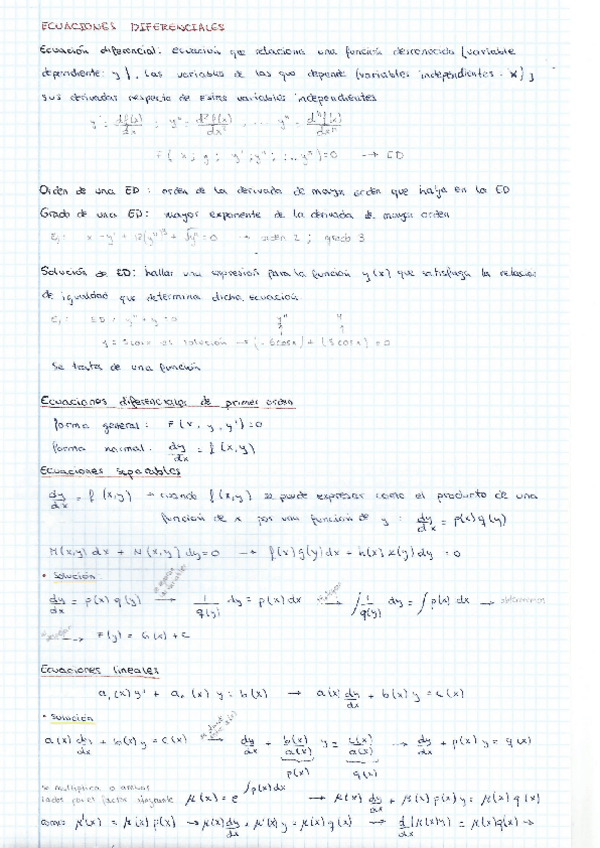 ECUACIONES DIFERENCIALES
Ecuación diferencial: ecuación que relaciona una función desconocida (variable
dependiente: y), las variables de las que depende (variables independientes: x) y
sus derivadas respecto de estas variables independientes
y' = df(x)/dx ; y'' = d²f(x)/dx² , ... yⁿ = dⁿf(x)/dxⁿ
F(x; y; y'; y''; ... yⁿ) = 0 → ED
Orden de una ED: orden de la derivada de mayor orden que haya en la ED
Grado de una ED: mayor exponente de la derivada de mayor orden
→ orden 2 ; grado 3
Solución de ED: hallar una expresión para la función y(x) que satisfaga la relación
de igualdad que determina dicha ecuación
Ej: ED: y'' + y = 0 y'' y
y = 5cosx es solución → (-5cosx) + (5cosx) = 0
Se trata de una función
Ecuaciones diferenciales de primer orden
forma general: F(x, y, y') = 0
forma normal: dy/dx = f(x,y)
Ecuaciones separables
dy/dx = f(x,y) → cuando f(x,y) se puede expresar como el producto de una
función de x por una función de y: dy/dx = p(x) q(y)
M(x,y) dx + N(x,y) dy = 0 → f(x) g(y) dx + h(x) k(y) dy = 0
• Solución
dy/dx = p(x) q(y) → 1/q(y) dy = p(x) dx → ∫ 1/q(y) dy = ∫ p(x) dx →
→ F(y) = G(x) + C
Ecuaciones lineales
a₁(x) y' + a₀(x) y = b(x) → a(x) dy/dx + b(x) y = c(x)
• Solución
a(x) dy/dx + b(x) y = c(x) → dy/dx + b(x)/a(x) y = c(x)/a(x) → dy/dx + p(x) y = q(x)
p(x) q(x)
se multiplica a ambos
lados por el factor integrante μ(x) = e^∫p(x)dx → μ(x) dy/dx + μ(x) p(x) y = μ(x) q(x)
como: μ'(x) = μ(x) p(x) → μ(x) dy/dx + μ'(x) y = μ(x) q(x) → d/dx (μ(x) y) = μ(x) q(x) →